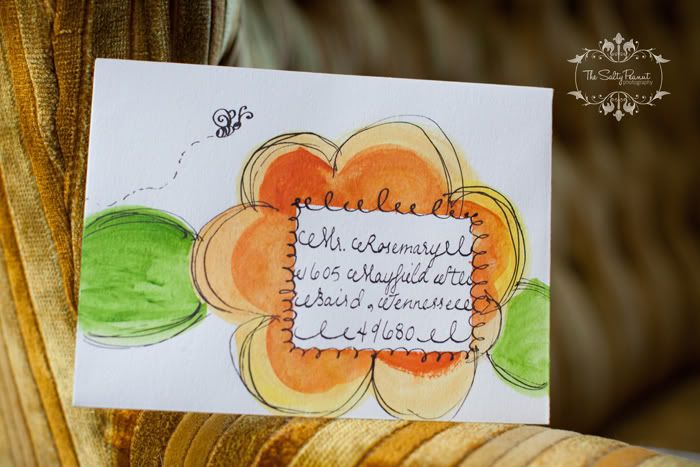 The Salty Peanut
photography
Mr. Rosemary
1605 Mayfield Ste
Baird, Tennessee
49680